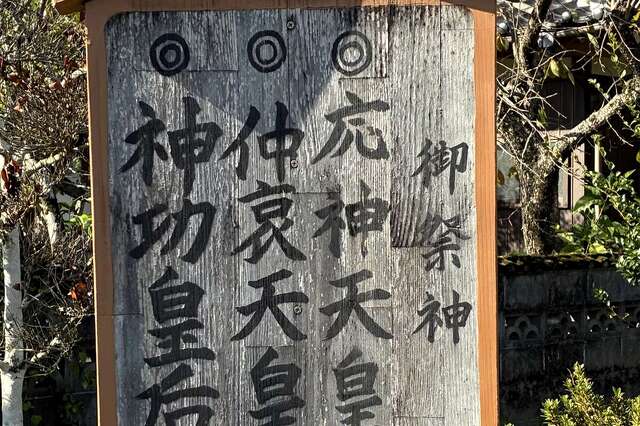 御祭神
◎応神天皇
◎仲哀天皇
◎神功皇后